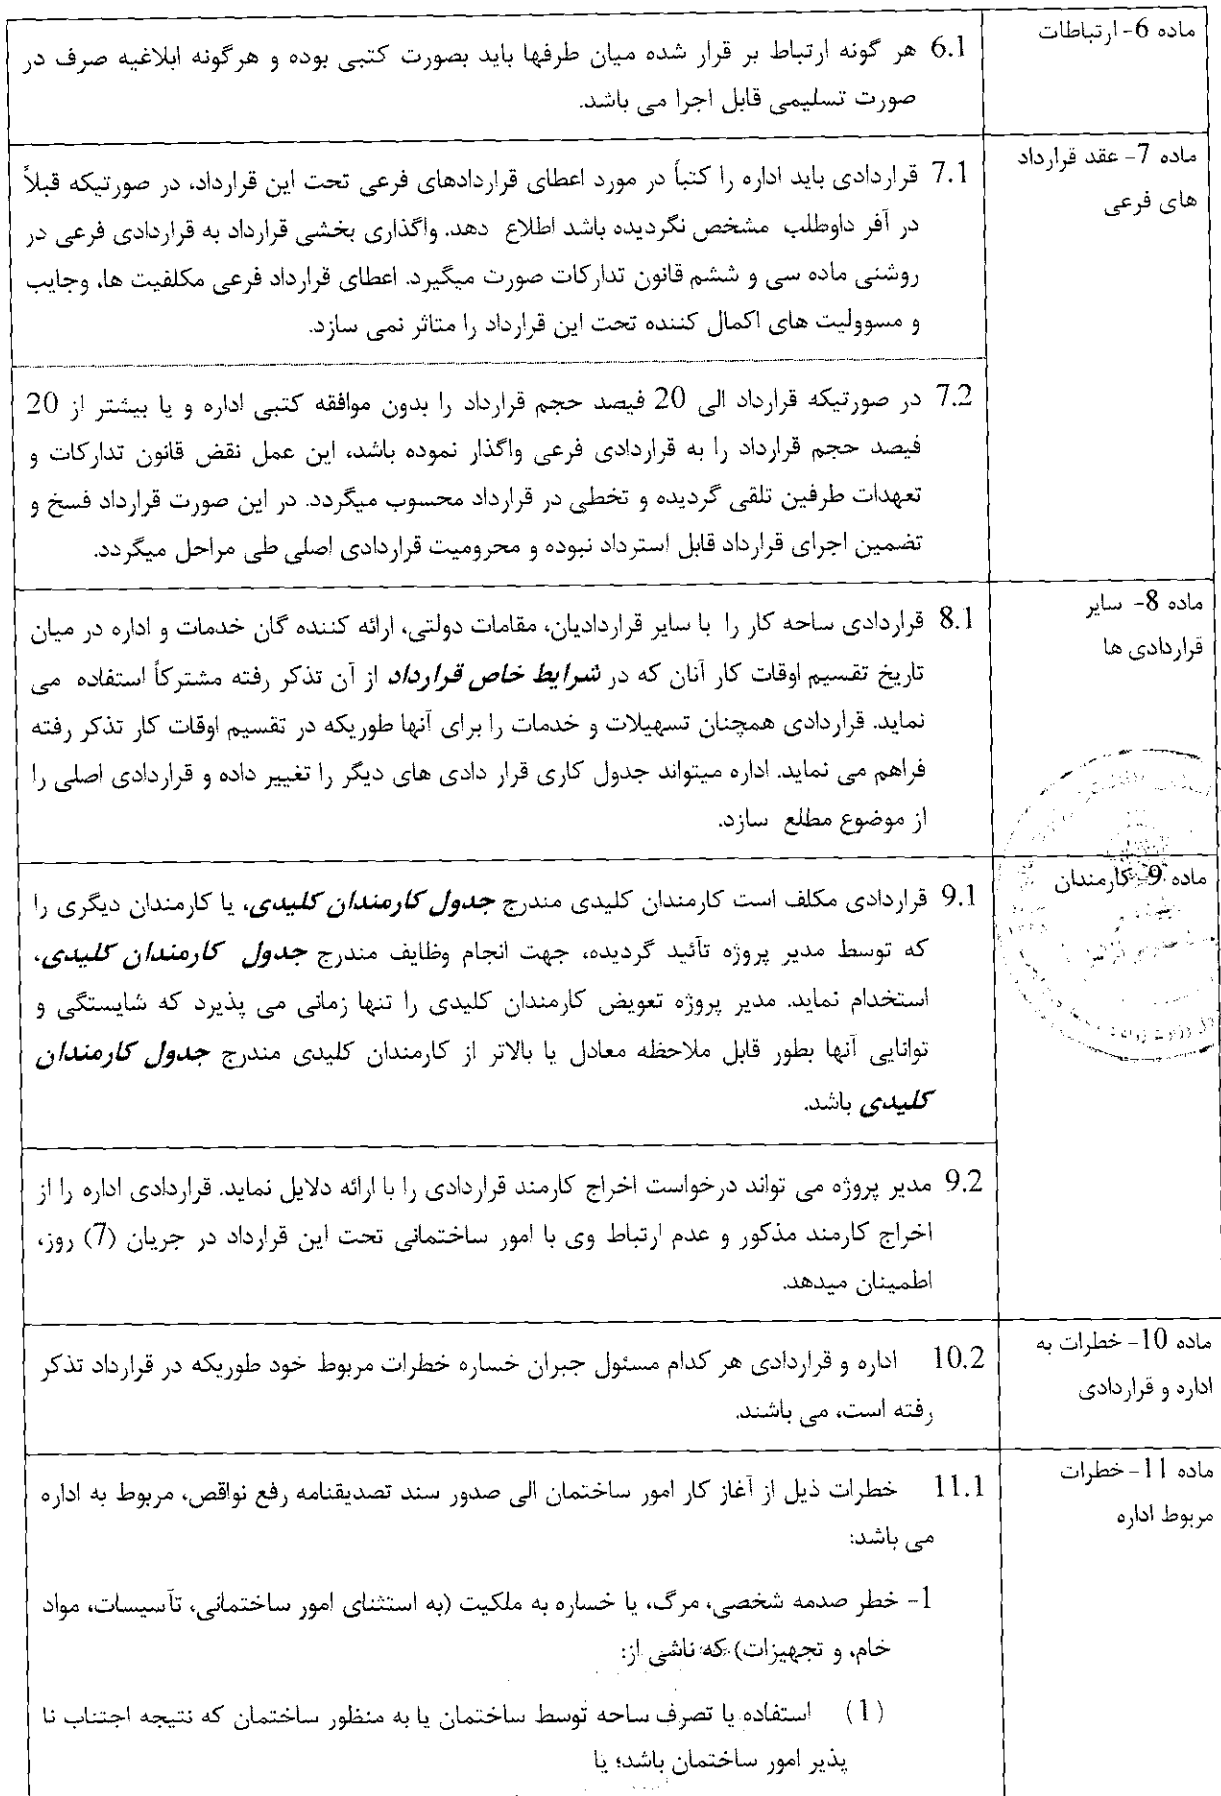 ماده 6- ارتباطات
6.1 هر گونه ارتباط بر قرار شده میان طرفها باید بصورت کتبی بوده و هرگونه ابلاغیه صرف در
صورت تسلیمی قابل اجرا می باشد.
ماده 7- عقد قرارداد
های فرعی
7.1 قراردادی باید اداره را کتباً در مورد اعطای قراردادهای فرعی تحت این قرارداد، در صورتیکه قبلاً
در آفر داوطلب مشخص نگردیده باشد اطلاع دهد. واگذاری بخشی قرارداد به قراردادی فرعی در
روشنی ماده سی و ششم قانون تدارکات صورت میگیرد. اعطای قرارداد فرعی مکلفیت ها، وجایب
و مسوولیت های اکمال کننده تحت این قرارداد را متاثر نمی سازد.
7.2 در صورتیکه قرارداد الی 20 فیصد حجم قرارداد را بدون موافقه کتبی اداره و یا بیشتر از 20
فیصد حجم قرارداد را به قراردادی فرعی واگذار نموده باشد، این عمل نقض قانون تدارکات و
تعهدات طرفین تلقی گردیده و تخطی در قرارداد محسوب میگردد. در این صورت قرارداد فسخ و
تضمین اجرای قرارداد قابل استرداد نبوده و محرومیت قراردادی اصلی طی مراحل میگردد.
ماده 8- سایر
قراردادی ها
8.1 قراردادی ساحه کار را با سایر قراردادیان، مقامات دولتی، ارائه کننده گان خدمات و اداره در میان
تاریخ تقسیم اوقات کار آنان که در شرایط خاص قرارداد از آن تذکر رفته مشترکاً استفاده می
نماید. قراردادی همچنان تسهیلات و خدمات را برای آنها طوریکه در تقسیم اوقات کار تذکر رفته
فراهم می نماید. اداره میتواند جدول کاری قرار دادی های دیگر را تغییر داده و قراردادی اصلی را
از موضوع مطلع سازد.
ماده 9- کارمندان
9.1 قراردادی مکلف است کارمندان کلیدی مندرج جدول کارمندان کلیدی، یا کارمندان دیگری را
که توسط مدیر پروژه تأئید گردیده، جهت انجام وظایف مندرج جدول کارمندان کلیدی،
استخدام نماید. مدیر پروژه تعویض کارمندان کلیدی را تنها زمانی می پذیرد که شایستگی و
توانایی آنها بطور قابل ملاحظه معادل یا بالاتر از کارمندان کلیدی مندرج جدول کارمندان
کلیدی باشد.
9.2 مدیر پروژه می تواند درخواست اخراج کارمند قراردادی را با ارائه دلایل نماید. قراردادی اداره را از
اخراج کارمند مذکور و عدم ارتباط وی با امور ساختمانی تحت این قرارداد در جریان (7) روز،
اطمینان میدهد.
ماده 10- خطرات به
اداره و قراردادی
10.2 اداره و قراردادی هر کدام مسئول جبران خساره خطرات مربوط خود طوریکه در قرارداد تذکر
رفته است، می باشند.
ماده 11- خطرات
مربوط اداره
11.1 خطرات ذیل از آغاز کار امور ساختمان الی صدور سند تصدیقنامه رفع نواقص، مربوط به اداره
می باشد:
1- خطر صدمه شخصی، مرگ، یا خساره به ملکیت (به استثنای امور ساختمانی، تأسیسات، مواد
خام، و تجهیزات) که ناشی از:
(1) استفاده یا تصرف ساحه توسط ساختمان یا به منظور ساختمان که نتیجه اجتناب نا
پذیر امور ساختمان باشد؛ یا